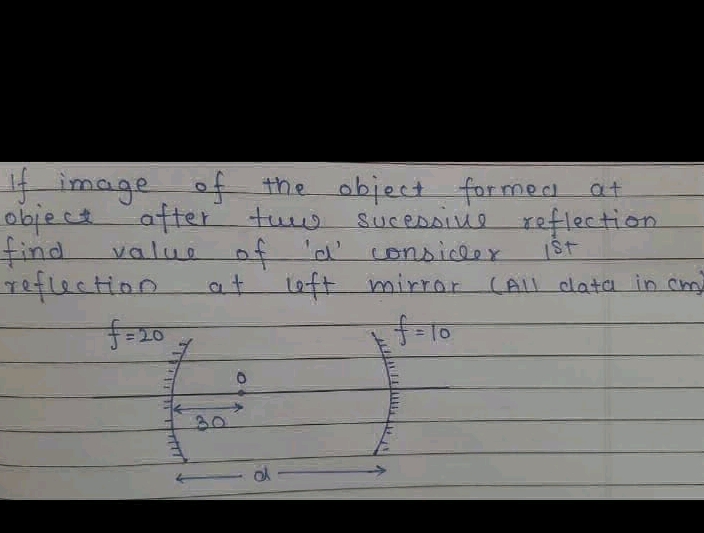 If image of the object formed at
object after two sucessive reflection
find value of 'd' consider 1st
reflection at left mirror (All data in cm)
f=20 f=10
O
30
d